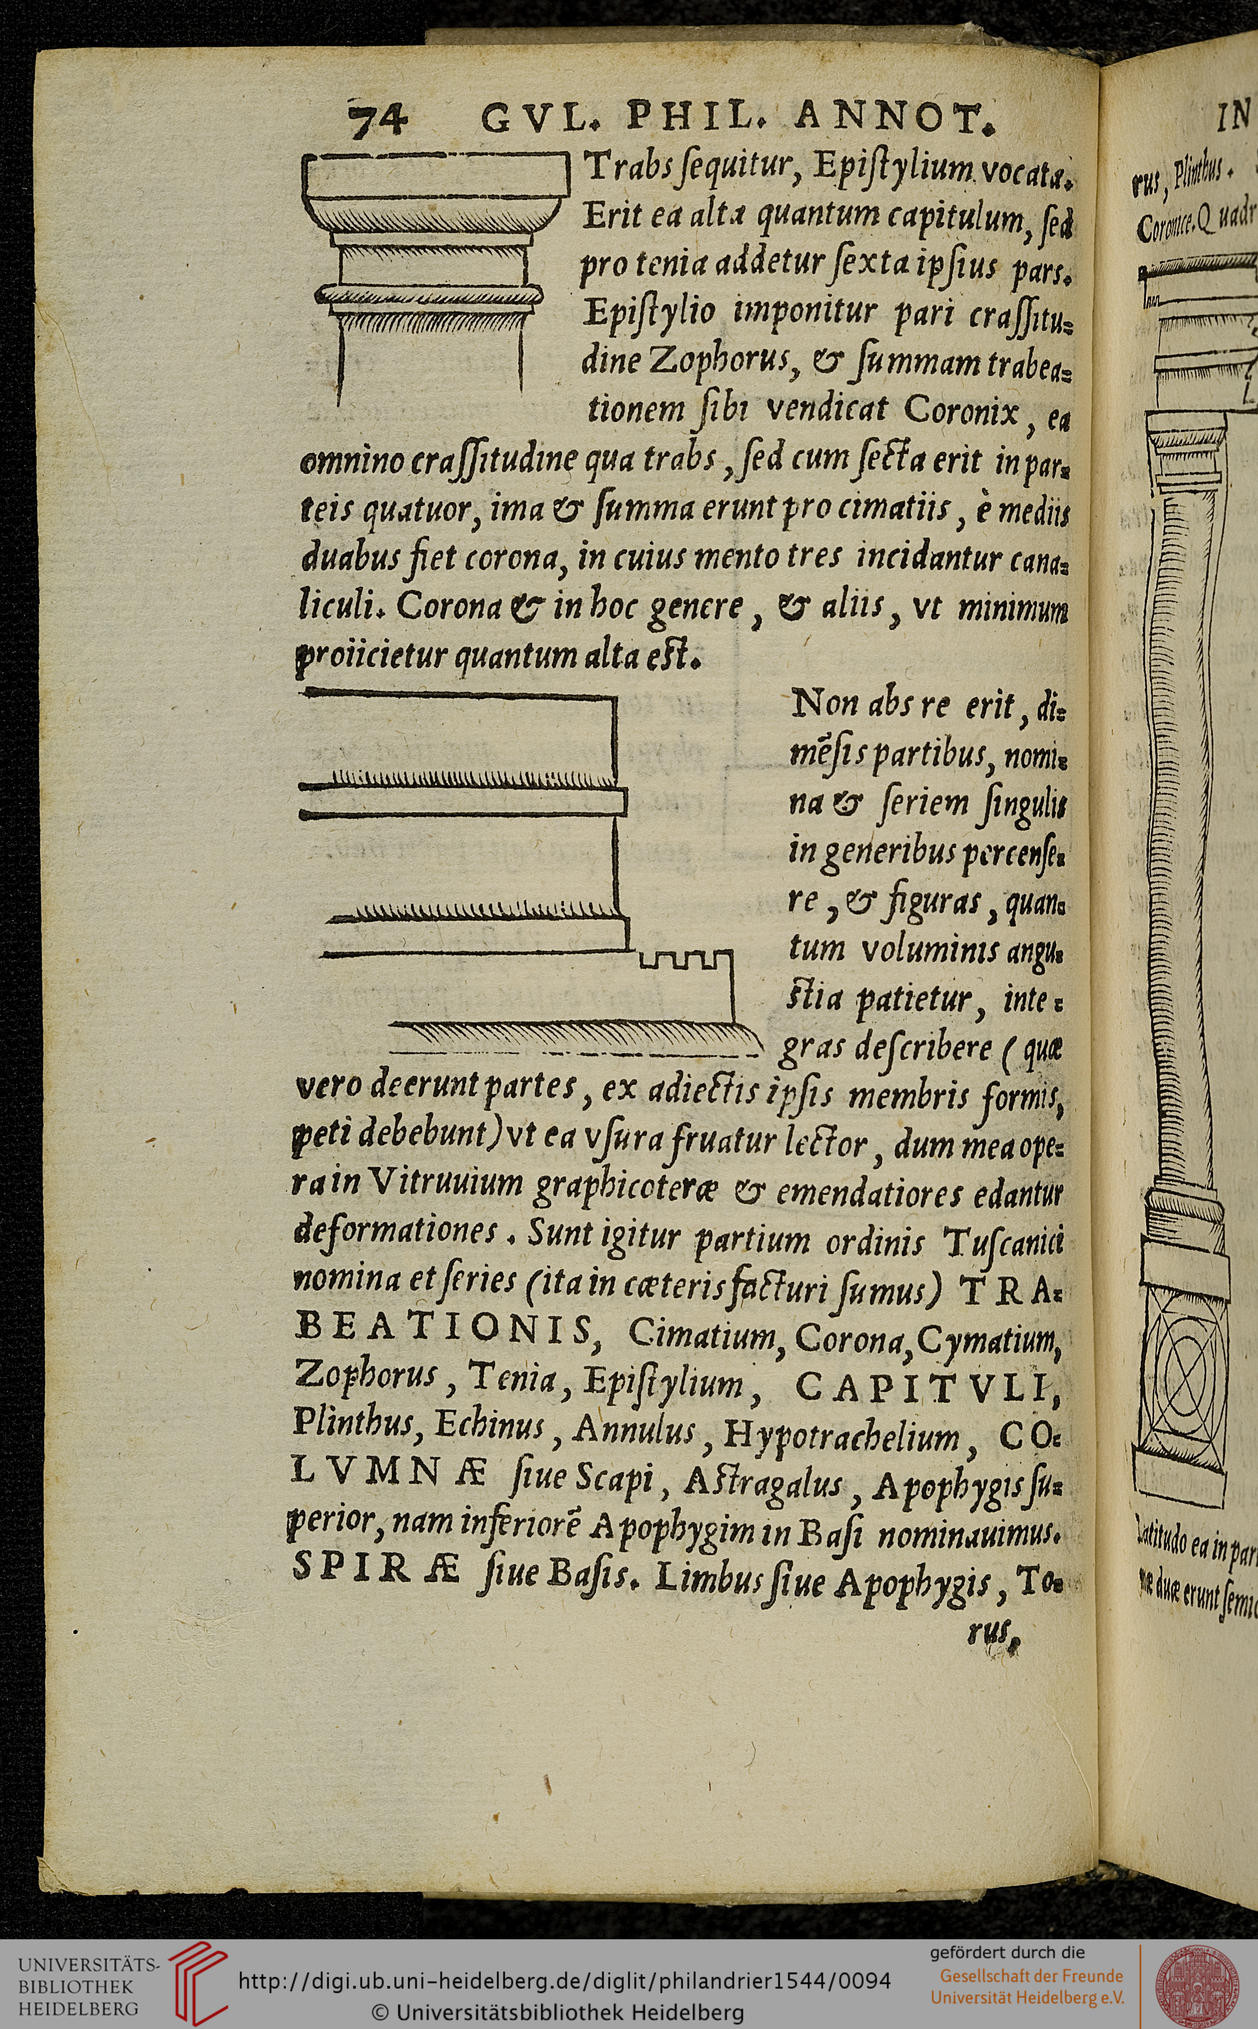 74 GVL. PHIL. ANNOT.
Trabs ſequitur, Epiſtylium vocata.
Erit ea alta quantum capitulum, ſed
pro tenia addetur ſexta ipſius pars.
Epiſtylio imponitur pari craſſitu=
dine Zophorus, & ſummam trabea=
tionem ſibi vendicat Coronix, ea
omnino craſſitudine qua trabs, ſed cum ſecta erit in par=
teis quatuor, ima & ſumma erunt pro cimatiis, è mediis
duabus fiet corona, in cuius mento tres incidantur cana=
liculi. Corona & in hoc genere, & aliis, vt minimum
proiicietur quantum alta eſt.
Non abs re erit, di=
mēſis partibus, nomi=
na & ſeriem ſingulis
in generibus percenſe=
re, & figuras, quan=
tum voluminis angu=
ſtia patietur, inte=
gras deſcribere (quæ
vero deerunt partes, ex adiectis ipſis membris formis,
peti debebunt) vt ea vſura fruatur lector, dum mea ope=
ra in Vitruuium graphicoteræ & emendatiores edantur
deformationes. Sunt igitur partium ordinis Tuſcanici
nomina et ſeries (ita in cæteris facturi ſumus) TRA=
BEATIONIS, Cimatium, Corona, Cymatium,
Zophorus, Tenia, Epiſtylium, CAPITVLI,
Plinthus, Echinus, Annulus, Hypotrachelium, CO=
LVMNÆ ſiue Scapi, Aſtragalus, Apophygis ſu=
perior, nam inferiorē Apophygim in Baſi nominauimus.
SPIRÆ ſiue Baſis. Limbus ſiue Apophygis, To=
rus,
IN
rus, Plinthus.
Coronice. Quadr
Latitudo ea in par
næ duæ erunt ſemi
UNIVERSITÄTS-
BIBLIOTHEK
HEIDELBERG
http://digi.ub.uni-heidelberg.de/diglit/philandrier1544/0094
© Universitätsbibliothek Heidelberg
gefördert durch die
Gesellschaft der Freunde
Universität Heidelberg e.V.